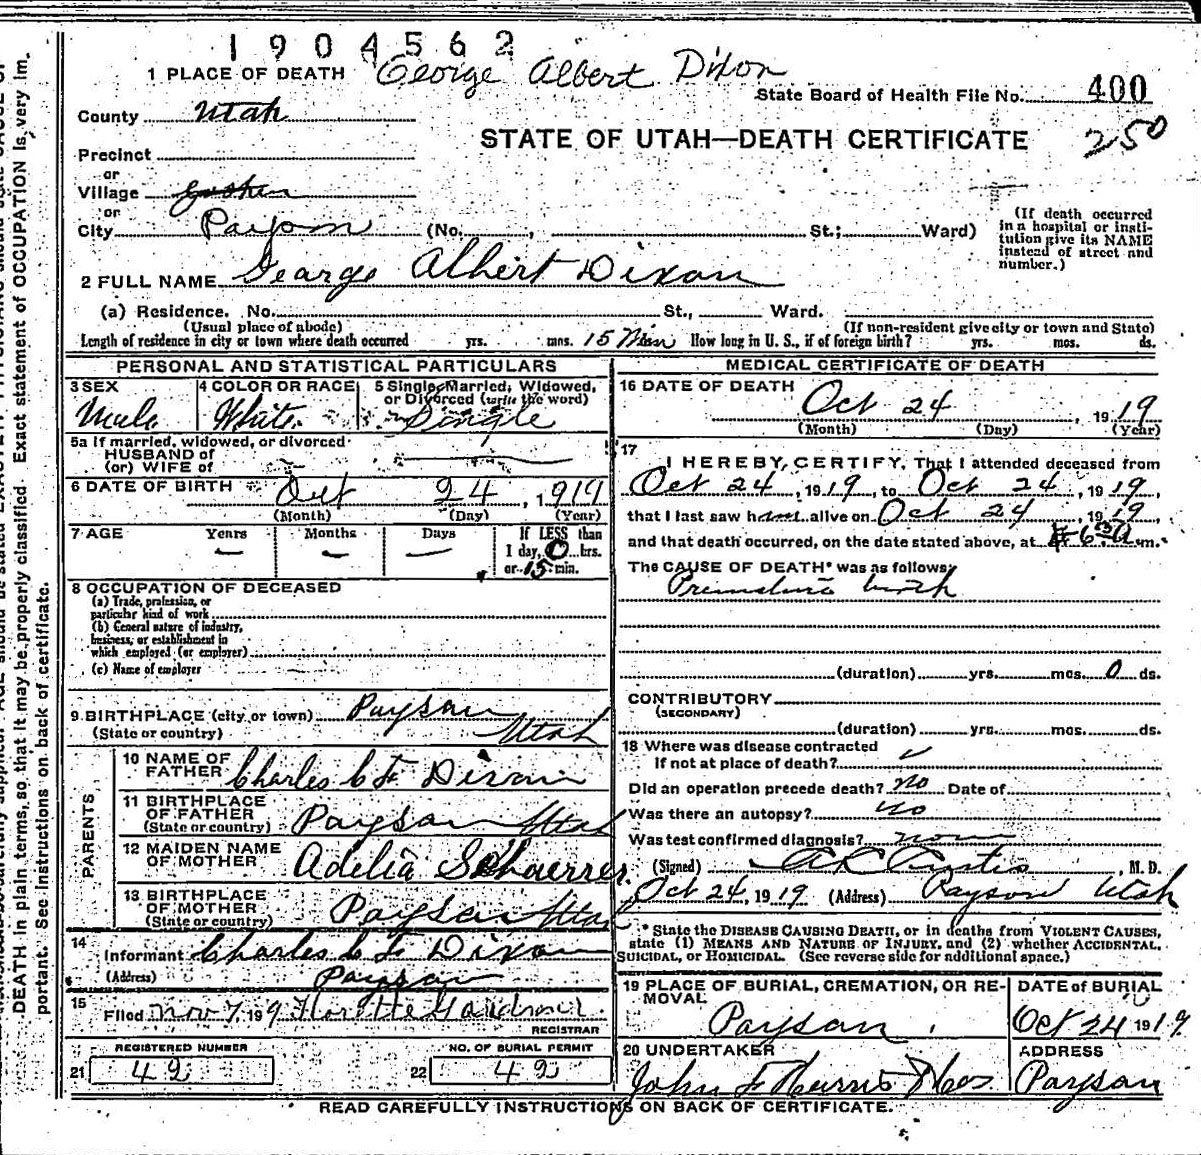 1904562
George Albert Dixon
1 PLACE OF DEATH
State Board of Health File No. 400
County Utah
250
STATE OF UTAH—DEATH CERTIFICATE
Precinct
or
Village Goshen
or
City Payson (No. , St.; Ward)
(If death occurred
in a hospital or insti-
tution give its NAME
instead of street and
number.)
2 FULL NAME George Albert Dixon
(a) Residence. No. St., Ward.
(Usual place of abode) (If non-resident give city or town and State)
Length of residence in city or town where death occurred yrs. mos. 15 Min How long in U. S., if of foreign birth? yrs. mos. ds.
PERSONAL AND STATISTICAL PARTICULARS
3 SEX 4 COLOR OR RACE 5 Single, Married, Widowed,
or Divorced (write the word)
Male White Single
5a If married, widowed, or divorced
HUSBAND of
(or) WIFE of
6 DATE OF BIRTH Oct 24, 1919
(Month) (Day) (Year)
7 AGE Years Months Days If LESS than
1 day, 0 hrs.
or 15 min.
8 OCCUPATION OF DECEASED
(a) Trade, profession, or
particular kind of work
(b) General nature of industry,
business, or establishment in
which employed (or employer)
(c) Name of employer
9 BIRTHPLACE (city or town) Payson
(State or country) Utah
PARENTS
10 NAME OF
FATHER Charles C F Dixon
11 BIRTHPLACE
OF FATHER
(State or country) Payson Utah
12 MAIDEN NAME
OF MOTHER Adelia Schaerrer
13 BIRTHPLACE
OF MOTHER
(State or country) Payson Utah
14
Informant Charles C F Dixon
(Address) Payson
15
Filed Nov 7, 19 9
REGISTRAR
REGISTERED NUMBER NO. OF BURIAL PERMIT
21 49 22 49
MEDICAL CERTIFICATE OF DEATH
16 DATE OF DEATH
Oct 24, 1919
(Month) (Day) (Year)
17
I HEREBY CERTIFY, That I attended deceased from
Oct 24, 1919, to Oct 24, 1919,
that I last saw him alive on Oct 24 1919,
and that death occurred, on the date stated above, at 6 30 a m.
The CAUSE OF DEATH* was as follows:
Premature birth
(duration) yrs. mos. 0 ds.
CONTRIBUTORY
(SECONDARY)
(duration) yrs. mos. ds.
18 Where was disease contracted
if not at place of death?
Did an operation precede death? no Date of
Was there an autopsy? no
Was test confirmed diagnosis? none
(Signed) A L Curtis, M. D.
Oct 24, 1919 (Address) Payson Utah
* State the DISEASE CAUSING DEATH, or in deaths from VIOLENT CAUSES,
state (1) MEANS AND NATURE OF INJURY, and (2) whether ACCIDENTAL,
SUICIDAL, or HOMICIDAL. (See reverse side for additional space.)
19 PLACE OF BURIAL, CREMATION, OR RE-
MOVAL
Payson
DATE of BURIAL
Oct 24 1919
20 UNDERTAKER ADDRESS
John F Payson
READ CAREFULLY INSTRUCTIONS ON BACK OF CERTIFICATE.
DEATH in plain terms, so that it may be properly classified. Exact statement of OCCUPATION is very im-
portant. See instructions on back of certificate.